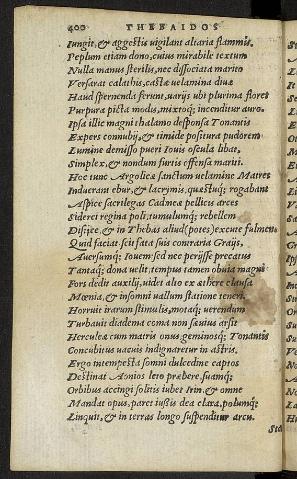 400 THEBAIDOS
Iungit, & aggestis vigilant altaria flammis.
Peplum etiam dono, cuius mirabile textum
Nulla manus sterilis, nec dissociata marito
Versarat calathis, castæ uelamina diuæ
Haud spernenda ferunt, uarijs ubi plurima floret
Purpura picta modis, mixtoq; incenditur auro.
Ipsa illic magni thalamo desponsa Tonantis
Expers connubij, & timide positura pudorem
Lumine demisso pueri Iouis oscula libat,
Simplex, & nondum furtis offensa mariti.
Hoc tunc Argolicæ sanctum uelamine Matres
Induerant ebur, & lacrimis, quæstuq; rogabant
Aspice sacrilegas Cadmeæ pellicis arces
Siderei regina poli: tumulumq; rebellem
Disijce, & in Thebas aliud (potes) excute fulmen
Quid faciat: scit fata suis contraria Graijs,
Auersumq; Iouem: sed nec perijsse precatus
Tantaq; dona uelit, tempus tamen obuia magni
Fors dedit auxilij, uidet alto ex æthere clausa
Mœnia, & insomni uallum statione teneri.
Horruit irarum stimulis, motaq; uerendum
Turbauit diadema coma non sæuius arsit
Herculeæ cum matris onus, geminosq; Tonantis
Concubitus uacuis indignaretur in astris.
Ergo intempesta somni dulcedine captos
Destinat Aonios leto præbere, suamq;
Orbibus accingi solitis iubet Irin, & omne
Mandat opus, paret iussis dea clara, polumq;
Linquit, & in terras longo suspenditur arcu.
Sta